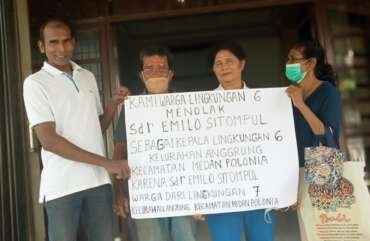 KAMI WARGA LINGKUNGAN 6
MENOLAK
Sdr EMILO SITOMPUL
SEBAGAI KEPALA LINGKUNGAN 6
KELURAHAN ANGGRUNG
KECAMATAN MEDAN POLONIA
KARENA Sdr EMILO SITOMPUL
WARGA DARI LINGKUNGAN 7
KELURAHAN ANGRUNG KECAMATAN MEDAN POLONIA
Bali